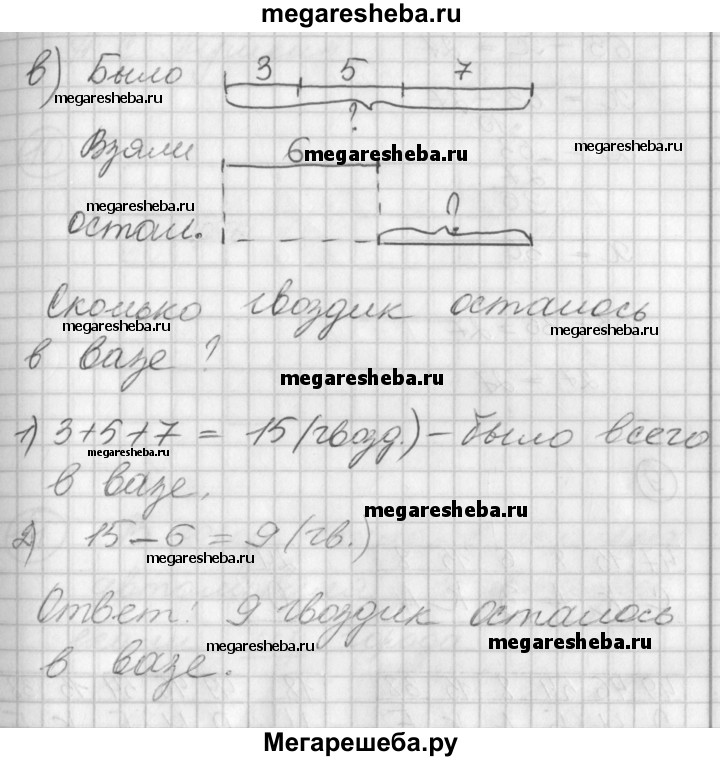 megaresheba.ru
в) Было 3 5 7
megaresheba.ru
?
Взяли 6 megaresheba.ru megaresheba.ru
megaresheba.ru
остал. ?
Сколько гвоздик осталось
megaresheba.ru megaresheba.ru
в вазе?
megaresheba.ru
1) 3+5+7 = 15 (гвозд.) – было всего
megaresheba.ru
в вазе.
megaresheba.ru
2) 15 – 6 = 9 (гв.)
megaresheba.ru
Ответ: 9 гвоздик осталось
megaresheba.ru megaresheba.ru
в вазе.
Мегарешеба.ру